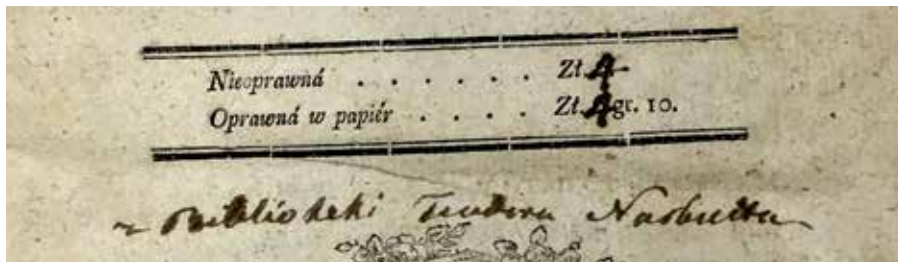 Nieoprawná . . . . . . Zł. 4
Oprawná w papiér . . . . Zł. 4 gr. 10.
z Biblioteki Teodora Narbutta